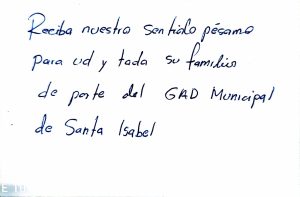 Reciba nuestro sentido pésame
para ud y toda su familia
de parte del GAD Municipal
de Santa Isabel